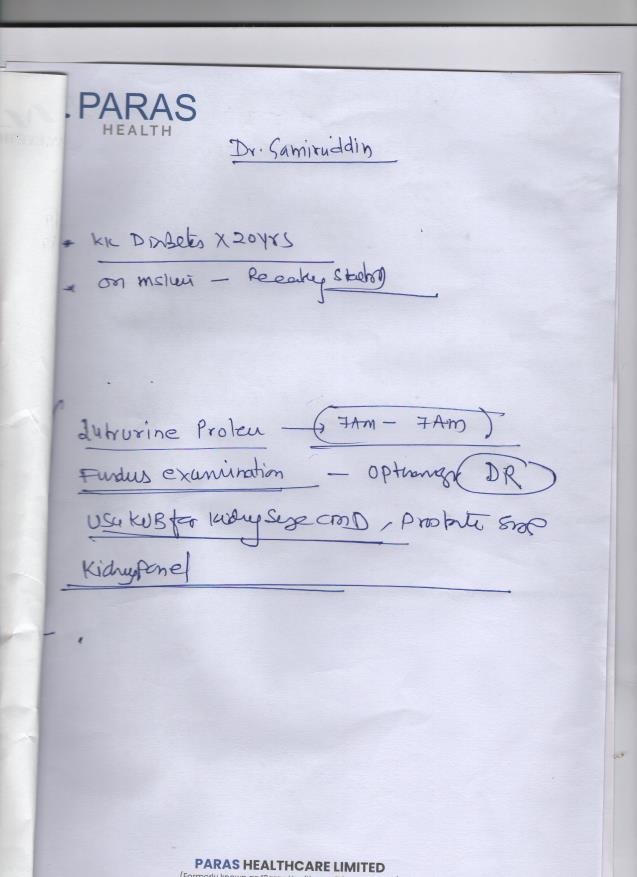 PARAS
HEALTH
Dr. Samiruddin
KK Diabetes X 20yrs
on – Recently Started
24hr urine Protein → 7AM – 7AM
Fundus examination – DR
USG KUB for Kidney Size CMD, Prostate Size
Kidney Panel
PARAS HEALTHCARE LIMITED